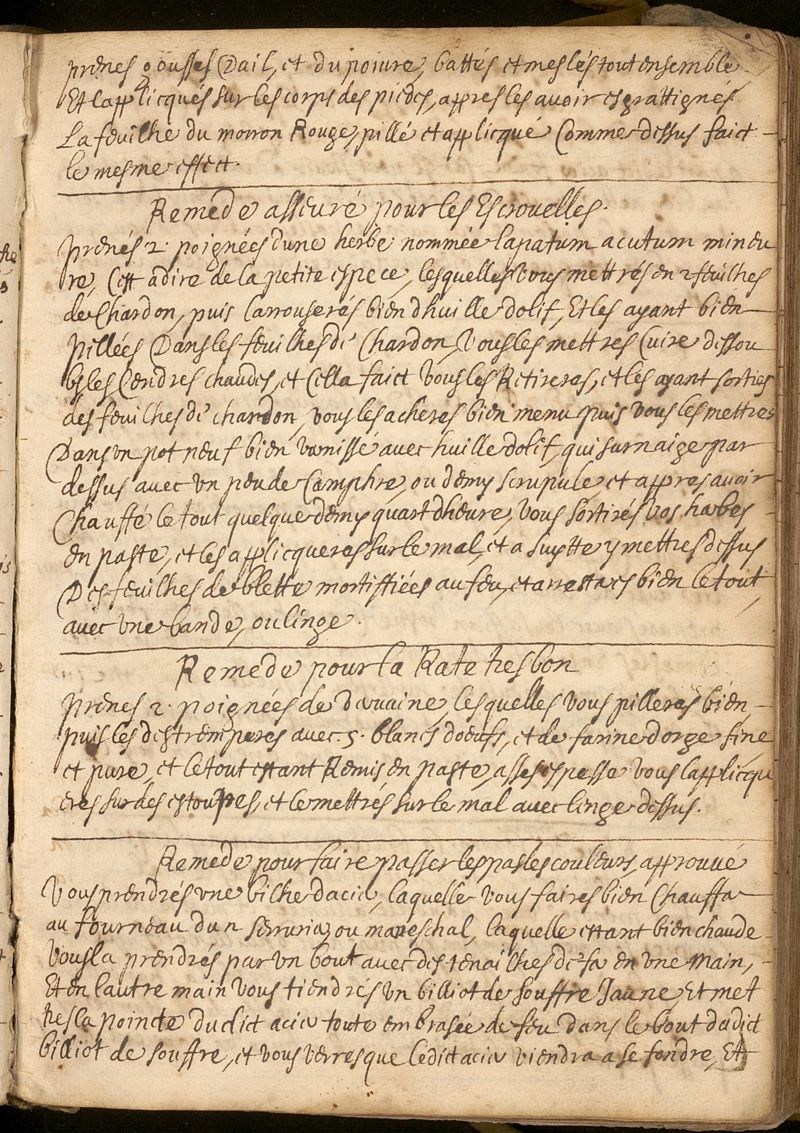 prenes gousses Dail, et du poivre, battés et meslés tout ensemble
Et lapplicqués sur les corps des pieds, appres les avoir esgrattignes
La feuilhe du morron Rouge, pillé et applicqué Comme dessus faict
le mesme effect.
Remede asseuré pour les Escrouelles.
prenés 2. poignées dune herbe nommée lapatum acutum mineu
re, Cest adire de la petite espece, lesquelles vous mettrés en 2 feuilhes
de Chardon, puis larrouserés bien dhuille dolif, Et les ayant bien
pillées Dans les feuilhes de Chardon, vous les mettres Cuire dessou
bs les Cendres chaudes, et Cella faict vous les Retireras, et les ayant sorties
des feuilhes de chardon, vous les acheres bien menu puis vous les mettres
Dans un pot neuf bien vernisse avec huille dolif, qui surnaige par
dessus avec un peu de Camphre, ou demy scrupule, et appres avoir
Chauffé le tout quelque demy quart dheure, vous sortirés vos herbes
en paste, et les applicqueres sur le mal, et a suytte y mettres dessus
Des feuilhes de blette mortiffiées au feu, et arrestares bien le tout
avec une bande, ou linge.
Remede pour la Rate tres bon
prenes 2. poignées de vervaine, lesquelles vous pilleras bien,
puis les destremperes avec 5. blancs doeufs, et de farine dorge fine
et pure, et le tout estant Remis en paste, asses espesse vous lapplicqu
eres sur des estoupes, et le mettrés sur le mal avec linge dessus.
Remede pour faire passer les pasles couleurs, approuvé
Vous prendres une bilhe dacier, laquelle vous faires bien Chauffer
au fourneau dun serrurier, ou mareschal, laquelle estant bien chaude
vous la prendrés par un bout avec des tenailhes de fer en une main,
Et en lautre main vous tiendres un billiot de souffre Jaune, Et met
tres la pointe dudict acier toute embrasée de feu dans le bout dudict
billiot de souffre, et vous verres que ledict acier viendra a se fondre, Et